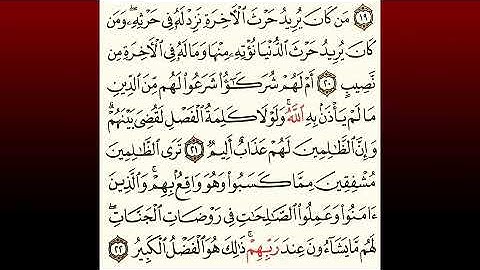 ١٩ مَن كَانَ يُرِيدُ حَرْثَ ٱلْـَٔاخِرَةِ نَزِدْ لَهُۥ فِى حَرْثِهِۦ ۖ وَمَن
كَانَ يُرِيدُ حَرْثَ ٱلدُّنْيَا نُؤْتِهِۦ مِنْهَا وَمَا لَهُۥ فِى ٱلْـَٔاخِرَةِ مِن
نَّصِيبٍ ٢٠ أَمْ لَهُمْ شُرَكَـٰٓؤُا۟ شَرَعُوا۟ لَهُم مِّنَ ٱلدِّينِ
مَا لَمْ يَأْذَنۢ بِهِ ٱللَّهُ ۚ وَلَوْلَا كَلِمَةُ ٱلْفَصْلِ لَقُضِىَ بَيْنَهُمْ ۗ
وَإِنَّ ٱلظَّـٰلِمِينَ لَهُمْ عَذَابٌ أَلِيمٌ ٢١ تَرَى ٱلظَّـٰلِمِينَ
مُشْفِقِينَ مِمَّا كَسَبُوا۟ وَهُوَ وَاقِعٌۢ بِهِمْ ۗ وَٱلَّذِينَ
ءَامَنُوا۟ وَعَمِلُوا۟ ٱلصَّـٰلِحَـٰتِ فِى رَوْضَاتِ ٱلْجَنَّاتِ ۖ
لَهُم مَّا يَشَآءُونَ عِندَ رَبِّهِمْ ۚ ذَٰلِكَ هُوَ ٱلْفَضْلُ ٱلْكَبِيرُ ٢٢